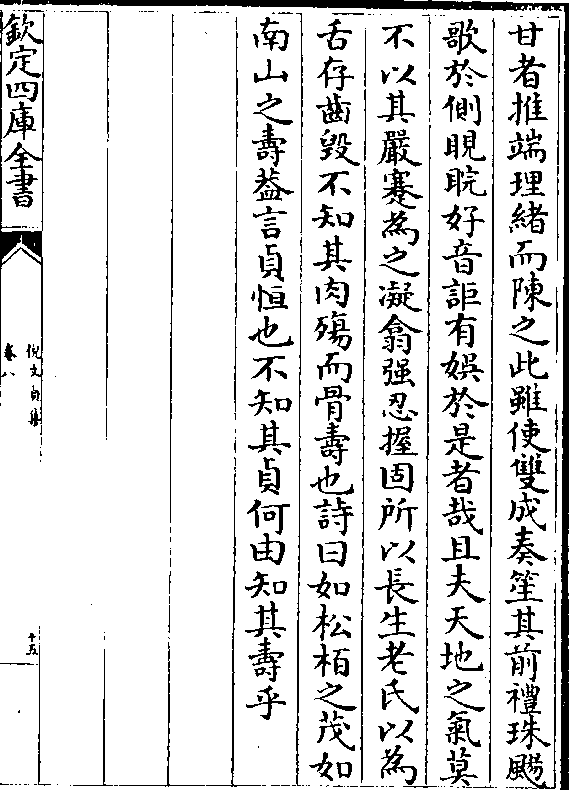 甘者推端理緒而陳之此雖使雙成奏笙其前禮珠颺
歌於側睍睆好音詎有娛於是者哉且夫天地之氣莫
不以其嚴蹇為之凝翕强忍握固所以長生老氏以為
舌存齒毀不知其肉殤而骨壽也詩曰如松栢之茂如
南山之壽葢言貞恒也不知其貞何由知其壽乎
欽定四庫全書
倪文貞集
卷八
十五